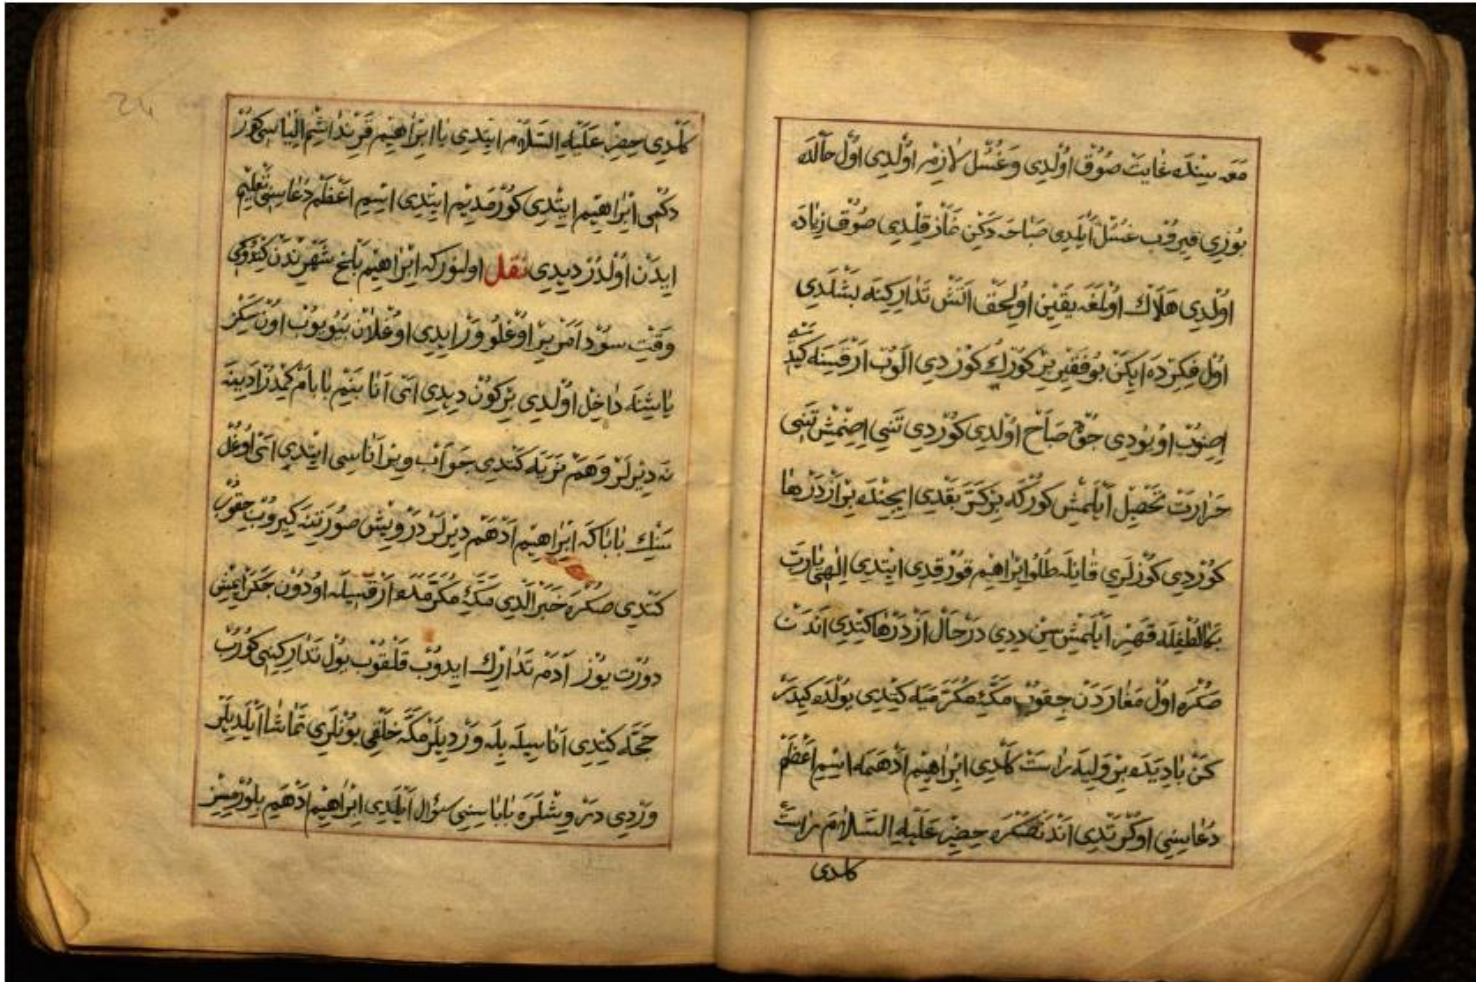 مَوسِنْدَه غَايَتْ صُوُقْ اُولْدِى وَغُسُلْ لَازِمْ اُولْدِى اُولْ حَالَدَه
بُوزِى قِيرُوبْ غُسُلْ اَيْلَدِى صَبَاحَه دَكِنْ نَمَازْ قِلْدِى صُوُقْ زِيَادَه
اُولْدِى هَلَاكْ اُولْمَغَه يَقِينْ اُولِيجَقْ اَتَشْ تَدَارِكِنَه بَشْلَدِى
اُولْ فِكِرْدَه اِيكَنْ بُو فَقِيرْ بِرْ كُورْكْ كُورْدِى اَلُوبْ اَرْقَسِنَه كَيْدِى
اِصِنُوبْ اُويُودِى چُونْ صَبَاحْ اُولْدِى كُورْدِى تَنِى اِصِنْمِشْ تَنِى
حَرَارَتْ تَحْصِيلْ اَيْلَمِشْ كُورْكَه بِرْ كَرَّ بَقْدِى اِيچِنْدَه بِرْ اَزْدَرْهَا
كُورْدِى كُوزْلَرِى قَانِلَه طُلُو اِبْرَاهِيمْ قُورْقْدِى اِيتْدِى اِلٰهِى يَارَبْ
بَڭَا لُطْفِلَه قَهِرْ اَيْلَمِشْ سِنْ دِدِى دَرْحَالْ اَزْدَرْهَا كِتْدِى اَنْدَنْ
صُكْرَه اُولْ مَغَارَدَنْ چِقُوبْ مَكَّۀِ مُكَرَّمَيَه كِتْدِى يُولْدَه كِيدَرْ
كَنْ بَادِيَدَه بِرْ وَلِيَه رَاسْتْ كَلْدِى اِبْرَاهِيمْ اَدْهَمَه اِسْمِ اَعْظَمْ
دُعَاسِنِى اوكْرَتْدِى اَنْدَنْصُكْرَه حِضِرْ عَلَيْهِ السَّلَامْ رَاسْتْ
كلدى
كَلْدِى حِضِرْ عَلَيْهِ السَّلَامْ اِيتْدِى يَا اِبْرَاهِيمْ قَرِنْدَاشِمْ اِلْيَاسِى كُورْ
دكْمِى اِبْرَاهِيمْ اِيتْدِى كُورْمَدِيمْ اِيتْدِى اِسْمِ اَعْظَمْ دُعَاسِنِى تَعْلِيمْ
اِيدَنْ اُولْدُرْ دِيدِى نَقِلْ اولنور كه اِبْرَاهِيمْ بَلْخْ شَهْرِنْدَنْ كِتْدُوكِى
وَقِتْ سُودْ اَمَرْ بِرْ اُوغْلُو وَرْ اِيدِى اُوغْلَانْ بُيُويُوبْ اُونْ سَكِزْ
يَاشِنَه دَاخِلْ اُولْدِى بِرْكُونْ دِيدِى اَىْ اَنَا بَنِيمْ بَابَامْ كِيمْدُرْ اَدِينَه
نَه دِيرْلَرْ وَهَمْ نَرَيَه كِتْدِى جَوَابْ وِيرْ اَنَاسِى اِيتْدِى اَىْ اُوغُلْ
سَنِكْ بَابَاكَه اِبْرَاهِيمْ اَدْهَمْ دِيرْلَرْ دَرْوِيشْ صُورَتِنَه كِيرُوبْ چِقُوبْ
كِتْدِى صُكْرَه خَبَرْ اَلْدِى مَكَّۀِ مُكَرَّمَدَه اَرْقَسِيلَه اُودُونْ چَكَرْ اِيمِشْ
دُورْتْ يُوزْ اَدَمْ تَدَارِكْ اِيدُوبْ قَلْقُوبْ يُولْ تَدَارِكِنِى كُورُبْ
حَجَّه كِتْدِى اَنَاسِيلَه بِلَه وَرْدِيلَرْ مَكَّه خَلْقِى بُونْلَرِى تَمَاشَا اَيْلَدِيلَرْ
وَرْدِى دَرْوِيشْلَرَه بَابَاسِنِى سُؤَالْ اَيْلَدِى اِبْرَاهِيمْ اَدْهَمْ بِلُورْمِسِزْ